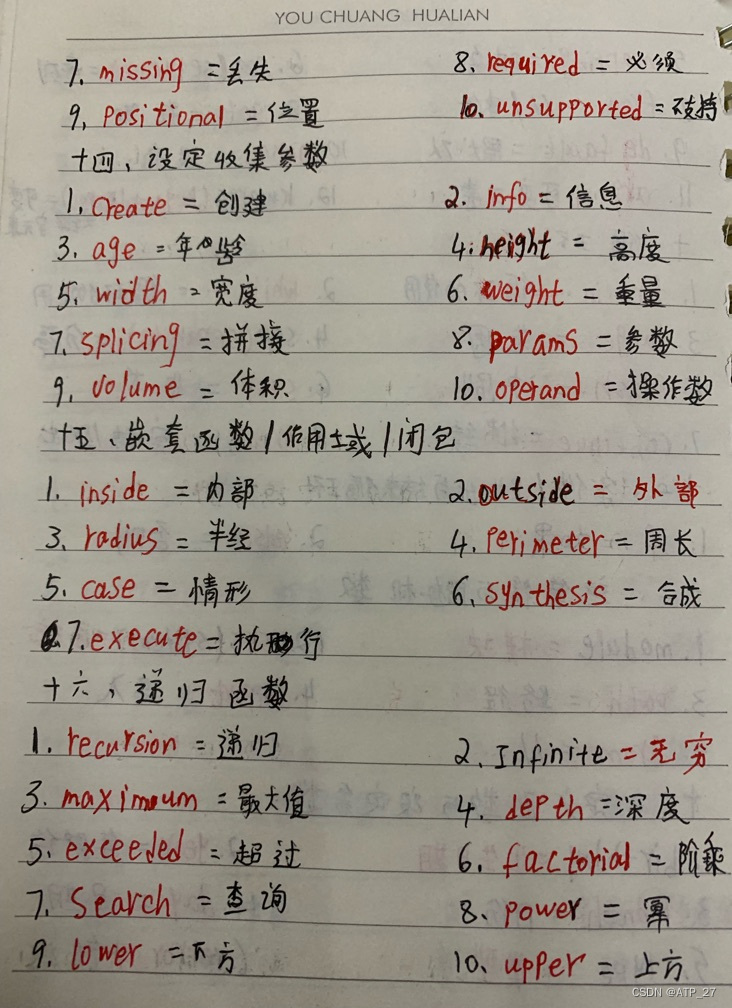 YOU CHUANG HUALIAN
7. missing =丢失 8. required = 必须
9. positional = 位置 10. unsupported = 不支持
十四、设定收集参数
1. Create = 创建 2. info = 信息
3. age = 年龄 4. height = 高度
5. width = 宽度 6. weight = 重量
7. splicing = 拼接 8. params = 参数
9. volume = 体积 10. operand = 操作数
十五、嵌套函数/作用域/闭包
1. inside = 内部 2. outside = 外部
3. radius = 半经 4. Perimeter = 周长
5. case = 情形 6. synthesis = 合成
7. execute = 执行
十六、递归函数
1. recursion = 递归 2. Infinite = 无穷
3. maximum = 最大值 4. depth = 深度
5. exceeded = 超过 6. factorial = 阶乘
7. Search = 查询 8. power = 幂
9. lower = 下方 10. upper = 上方
CSDN @ATP_27